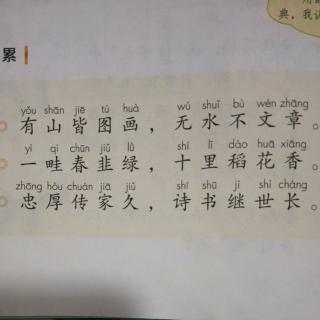 典，我认
累
yǒu shān jiē tú huà  wú shuǐ bù wén zhāng
有山皆图画，无水不文章。
yì qí chūn jiǔ lǜ  shí lǐ dào huā xiāng
一畦春韭绿，十里稻花香。
zhōng hòu chuán jiā jiǔ  shī shū jì shì cháng
忠厚传家久，诗书继世长。